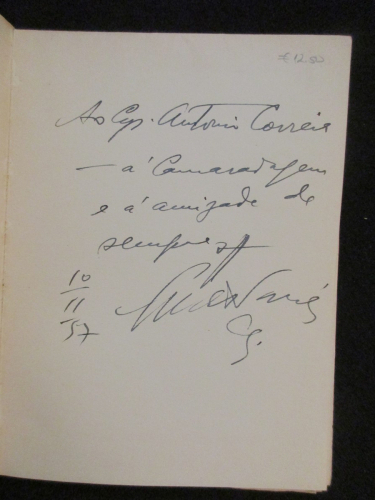 € 12.50
Ao Cap. António Correia
— à Camaradagem
e à amizade de
sempre
10
11
57